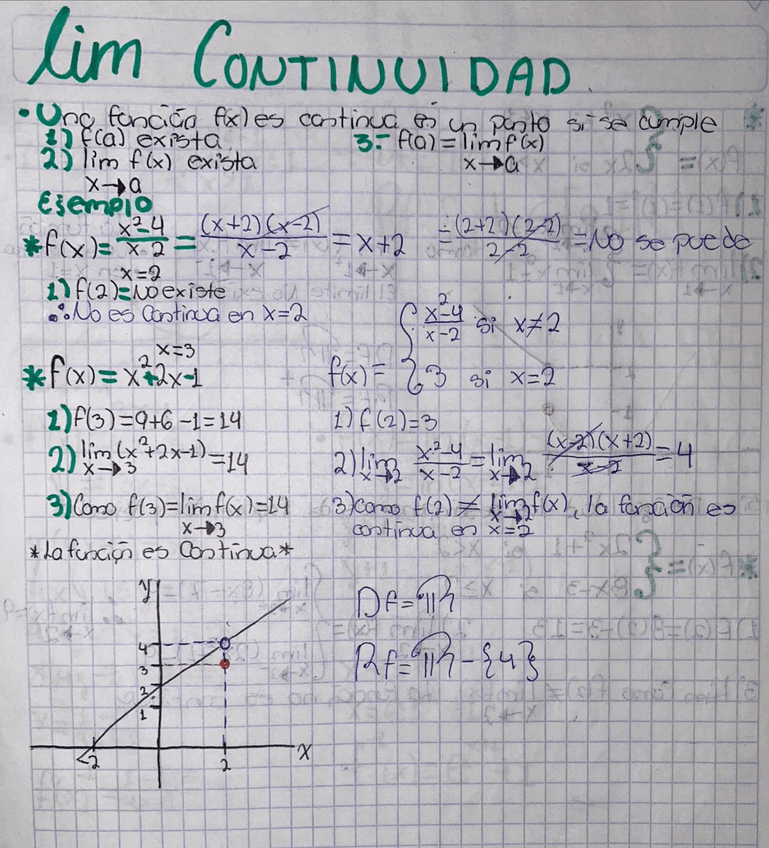 lim CONTINUIDAD.
• Una función f(x) es continua en un punto si se cumple
1) f(a) exista 3.- f(a) = lim f(x)
2) lim f(x) exista x→a
x→a
Ejemplo
* f(x) = x²-4 / x-2 = (x+2)(x-2) / x-2 = x+2 = (2+2)(2-2) / 2-2 = No se puede
x=2
1) f(2) = No existe
∴ No es continua en x=2
x=3
* f(x) = x²+2x-1
1) f(3) = 9+6-1 = 14
2) lim (x²+2x-1) = 14
x→3
3) Como f(3) = lim f(x) = 14
x→3
* La función es Continua *
f(x) = { x²-4 / x-2 si x≠2
3 si x=2
1) f(2) = 3
2) lim x²-4 / x-2 = lim (x-2)(x+2) / x-2 = 4
x→2 x→2
3) como f(2) ≠ lim f(x), la función es
x→2
continua en x=2
y
4
3
2
1
-2 2 x
Df = IR
Rf = IR - {4}